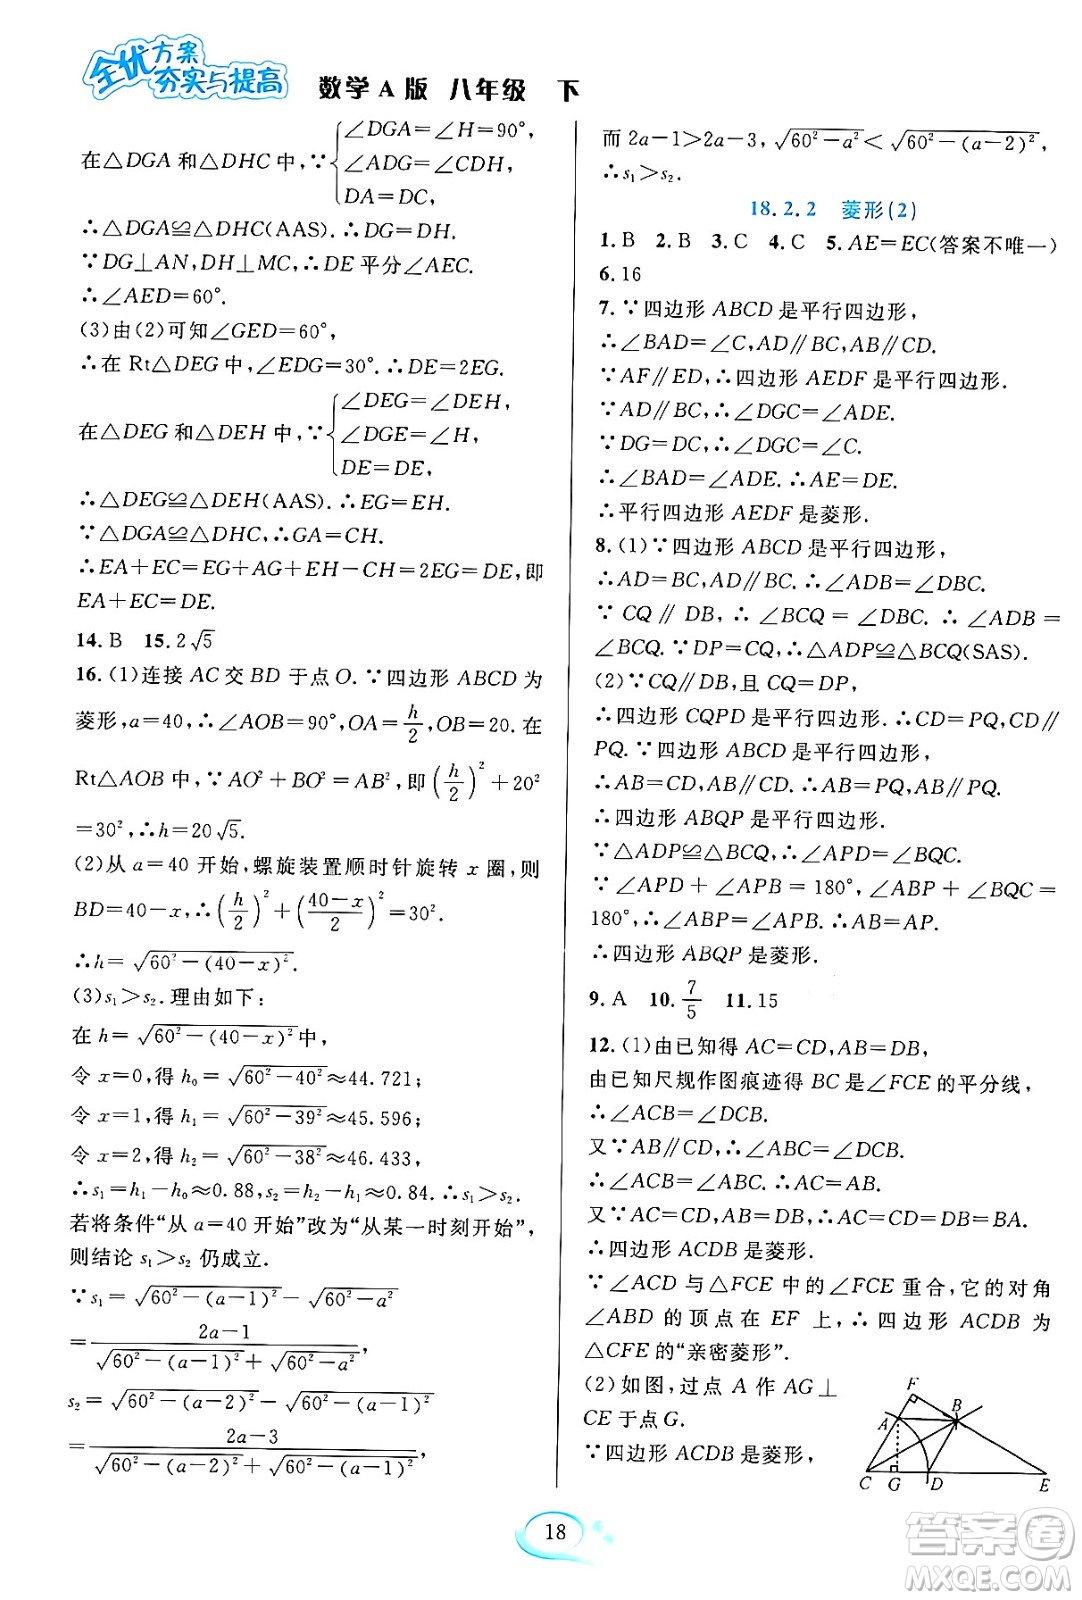 全优方案
夯实与提高
数学A版 八年级 下
在△DGA和△DHC中,∵{∠DGA=∠H=90°,
∠ADG=∠CDH,
DA=DC,
∴△DGA≌△DHC(AAS).∴DG=DH.
∵DG⊥AN,DH⊥MC,∴DE平分∠AEC.
∴∠AED=60°.
(3)由(2)可知∠GED=60°,
∴在Rt△DEG中,∠EDG=30°.∴DE=2EG.
在△DEG和△DEH中,∵{∠DEG=∠DEH,
∠DGE=∠H,
DE=DE,
∴△DEG≌△DEH(AAS).∴EG=EH.
∵△DGA≌△DHC,∴GA=CH.
∴EA+EC=EG+AG+EH-CH=2EG=DE,即
EA+EC=DE.
14.B 15.2√5
16.(1)连接AC交BD于点O.∵四边形ABCD为
菱形,a=40,∴∠AOB=90°,OA=h/2,OB=20.在
Rt△AOB中,∵AO²+BO²=AB²,即(h/2)²+20²
=30²,∴h=20√5.
(2)从a=40开始,螺旋装置顺时针旋转x圈,则
BD=40-x,∴(h/2)²+((40-x)/2)²=30².
∴h=√(60²-(40-x)²).
(3)s₁>s₂.理由如下:
在h=√(60²-(40-x)²)中,
令x=0,得h₀=√(60²-40²)≈44.721;
令x=1,得h₁=√(60²-39²)≈45.596;
令x=2,得h₂=√(60²-38²)≈46.433,
∴s₁=h₁-h₀≈0.88,s₂=h₂-h₁≈0.84.∴s₁>s₂.
若将条件“从a=40开始”改为“从某一时刻开始”,
则结论s₁>s₂仍成立.
∵s₁=√(60²-(a-1)²)-√(60²-a²)
=(2a-1)/(√(60²-(a-1)²)+√(60²-a²)),
s₂=√(60²-(a-2)²)-√(60²-(a-1)²)
=(2a-3)/(√(60²-(a-2)²)+√(60²-(a-1)²)),
而2a-1>2a-3,√(60²-a²)<√(60²-(a-2)²),
∴s₁>s₂.
18.2.2 菱形(2)
1.B 2.B 3.C 4.C 5.AE=EC(答案不唯一)
6.16
7.∵四边形ABCD是平行四边形,
∴∠BAD=∠C,AD∥BC,AB∥CD.
∵AF∥ED,∴四边形AEDF是平行四边形.
∵AD∥BC,∴∠DGC=∠ADE.
∵DG=DC,∴∠DGC=∠C.
∴∠BAD=∠ADE.∴AE=DE.
∴平行四边形AEDF是菱形.
8.(1)∵四边形ABCD是平行四边形,
∴AD=BC,AD∥BC.∴∠ADB=∠DBC.
∵CQ∥DB,∴∠BCQ=∠DBC.∴∠ADB=
∠BCQ.∵DP=CQ,∴△ADP≌△BCQ(SAS).
(2)∵CQ∥DB,且CQ=DP,
∴四边形CQPD是平行四边形.∴CD=PQ,CD∥
PQ.∵四边形ABCD是平行四边形,
∴AB=CD,AB∥CD.∴AB=PQ,AB∥PQ.
∴四边形ABQP是平行四边形.
∵△ADP≌△BCQ,∴∠APD=∠BQC.
∵∠APD+∠APB=180°,∴∠ABP+∠BQC=
180°.∴∠ABP=∠APB.∴AB=AP.
∴四边形ABQP是菱形.
9.A 10.7/5 11.15
12.(1)由已知得AC=CD,AB=DB,
由已知尺规作图痕迹得BC是∠FCE的平分线,
∴∠ACB=∠DCB.
又∵AB∥CD,∴∠ABC=∠DCB.
∴∠ACB=∠ABC.∴AC=AB.
又∵AC=CD,AB=DB,∴AC=CD=DB=BA.
∴四边形ACDB是菱形.
∵∠ACD与△FCE中的∠FCE重合,它的对角
∠ABD的顶点在EF上,∴四边形ACDB为
△CFE的“亲密菱形”.
(2)如图,过点A作AG⊥
CE于点G.
∵四边形ACDB是菱形,
F
A
B
C
G
D
E
18
答案卷
MXQE.COM